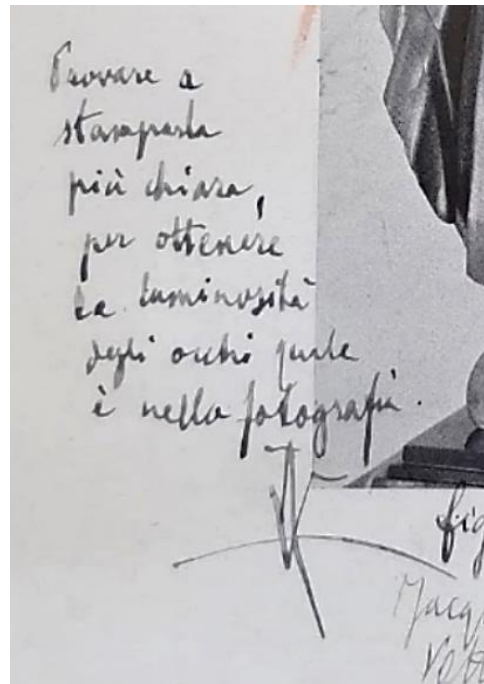 Provare a
stamparla
più chiara,
per ottenere
la luminosità
degli occhi quale
è nella fotografia.
fig
Jacq